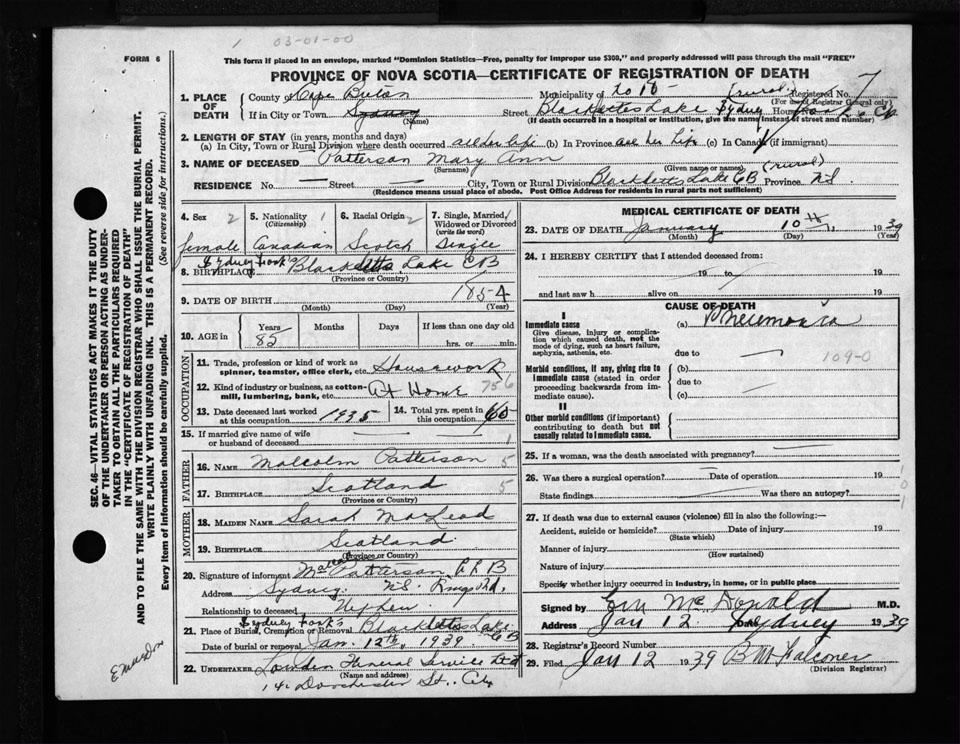 1 03-01-00
FORM 6
This form if placed in an envelope, marked "Dominion Statistics—Free, penalty for improper use $300," and properly addressed will pass through the mail "FREE"
PROVINCE OF NOVA SCOTIA—CERTIFICATE OF REGISTRATION OF DEATH
1. PLACE OF DEATH
County of Cape Breton Municipality of (rural) Registered No. 7
(For use of Registrar General only)
If in City or Town Sydney (Name) Street Blacketts Lake Sydney House No.
(If death occurred in a hospital or institution, give the name instead of street and number)
2. LENGTH OF STAY (in years, months and days)
(a) In City, Town or Rural Division where death occurred all her life (b) In Province all her life (c) In Canada (if immigrant)
3. NAME OF DECEASED Patterson Mary Ann
(Surname) (Given name or names)
RESIDENCE No. — Street — City, Town or Rural Division Blacketts Lake CB (rural) Province N.S.
(Residence means usual place of abode. Post Office Address for residents in rural parts not sufficient)
4. Sex 2 5. Nationality 1 (Citizenship) 6. Racial Origin 2 7. Single, Married, Widowed or Divorced (write the word) 1
female Canadian Scotch Single
Sydney Fork's
8. BIRTHPLACE Blacketts Lake CB
(Province or Country)
9. DATE OF BIRTH 1854
(Month) (Day) (Year)
10. AGE in Years Months Days If less than one day
85 hrs. or min.
OCCUPATION
11. Trade, profession or kind of work as spinner, teamster, office clerk, etc. Housework
12. Kind of industry or business, as cotton-mill, lumbering, bank, etc. At Home 756
13. Date deceased last worked at this occupation 1935 14. Total yrs. spent in this occupation 60
15. If married give name of wife or husband of deceased — — 1
FATHER
16. NAME Malcolm Patterson 5
17. BIRTHPLACE Scotland 5
(Province or Country)
MOTHER
18. MAIDEN NAME Sarah MacLeod
19. BIRTHPLACE Scotland
(Province or Country)
20. Signature of informant Patterson
Address Sydney N.S.
Relationship to deceased Nephew
Sydney Fork's
21. Place of Burial, Cremation or Removal Blacketts Lake CB
Date of burial or removal Jan. 12th, 1939
22. UNDERTAKER Funeral Service Ltd
(Name and address)
Dorchester St., City
MEDICAL CERTIFICATE OF DEATH
23. DATE OF DEATH January 10th 1939
(Month) (Day) (Year)
24. I HEREBY CERTIFY that I attended deceased from:
19 to 19
and last saw h alive on 19
CAUSE OF DEATH
I
Immediate cause (a) Pneumonia
Give disease, injury or complication which caused death, not the mode of dying, such as heart failure, asphyxia, asthenia, etc.
due to — 109-0
Morbid conditions, if any, giving rise to Immediate cause (stated in order proceeding backwards from immediate cause).
(b)
due to —
(c)
II
Other morbid conditions (if important) contributing to death but not causally related to Immediate cause.
25. If a woman, was the death associated with pregnancy?
26. Was there a surgical operation? Date of operation 19
State findings Was there an autopsy?
27. If death was due to external causes (violence) fill in also the following:—
Accident, suicide or homicide? Date of injury 19
(State which)
Manner of injury
(How sustained)
Nature of injury
Specify whether injury occurred in industry, in home, or in public place
Signed by McDonald M.D.
Address Jan 12 Date Sydney 1939
28. Registrar's Record Number
29. Filed Jan 12 1939 B M Falconer
(Division Registrar)
SEC. 46—VITAL STATISTICS ACT MAKES IT THE DUTY
OF THE UNDERTAKER OR PERSON ACTING AS UNDER-
TAKER TO OBTAIN ALL THE PARTICULARS REQUIRED
IN THE "CERTIFICATE OF REGISTRATION OF DEATH"
AND TO FILE THE SAME WITH THE DIVISION REGISTRAR WHO SHALL ISSUE THE BURIAL PERMIT.
WRITE PLAINLY WITH UNFADING INK. THIS IS A PERMANENT RECORD.
Every item of information should be carefully supplied. (See reverse side for instructions.)